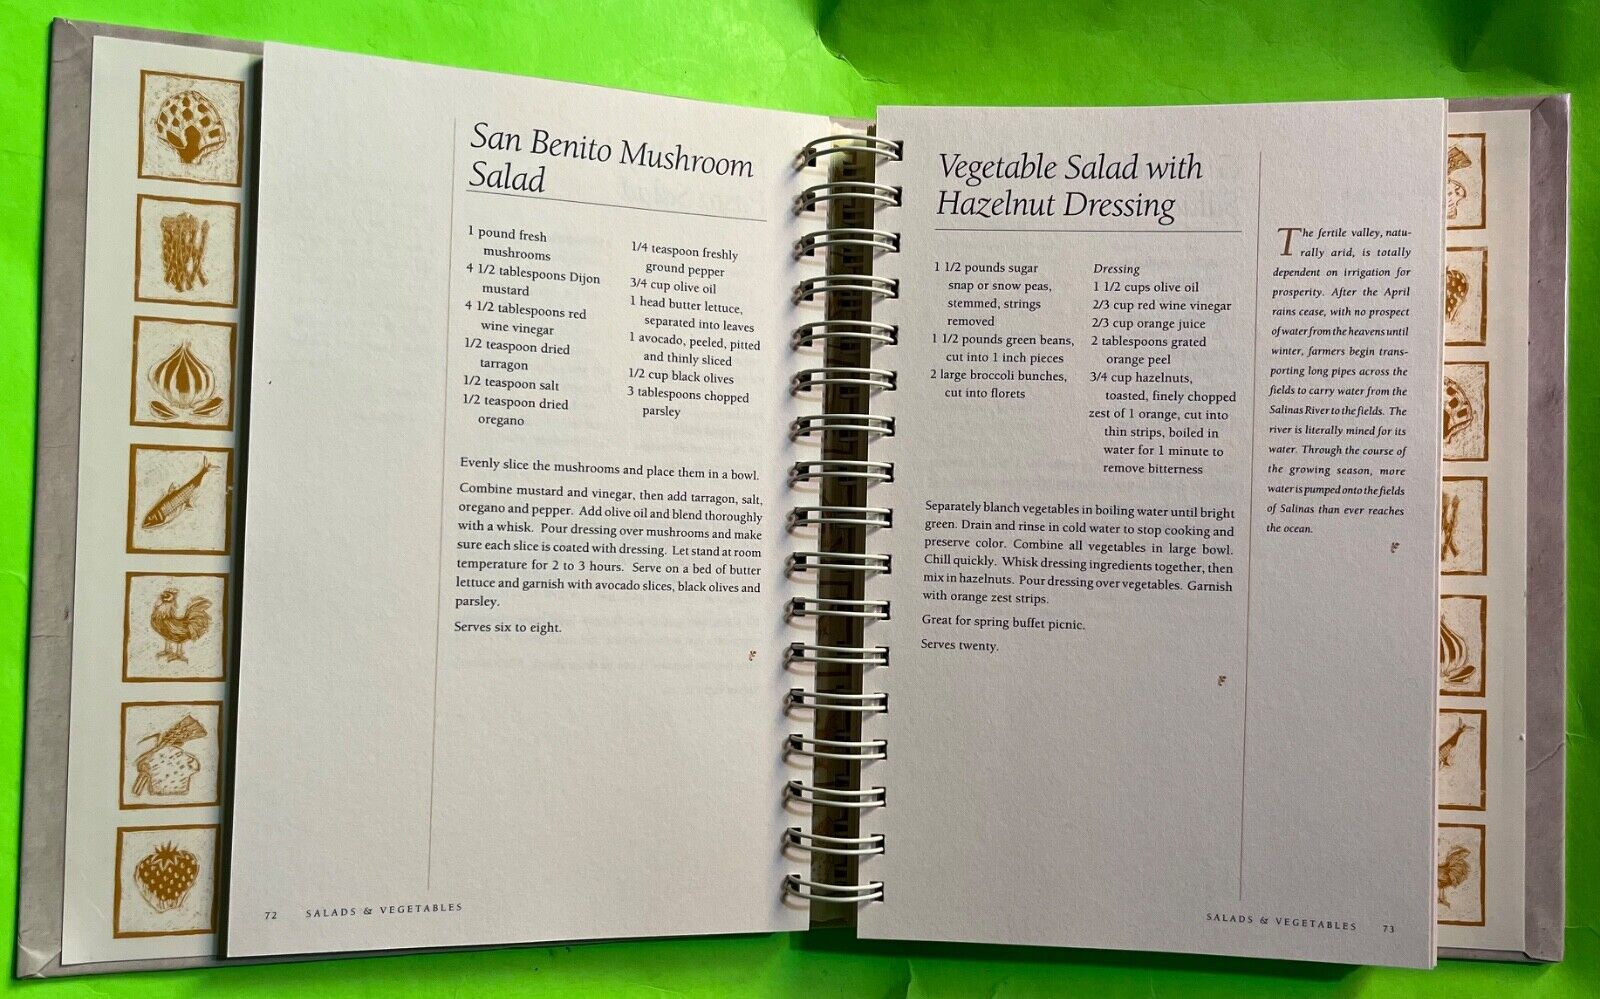 San Benito Mushroom
Salad
1 pound fresh
mushrooms
4 1/2 tablespoons Dijon
mustard
4 1/2 tablespoons red
wine vinegar
1/2 teaspoon dried
tarragon
1/2 teaspoon salt
1/2 teaspoon dried
oregano
1/4 teaspoon freshly
ground pepper
3/4 cup olive oil
1 head butter lettuce,
separated into leaves
1 avocado, peeled, pitted
and thinly sliced
1/2 cup black olives
3 tablespoons chopped
parsley
Evenly slice the mushrooms and place them in a bowl.
Combine mustard and vinegar, then add tarragon, salt,
oregano and pepper. Add olive oil and blend thoroughly
with a whisk. Pour dressing over mushrooms and make
sure each slice is coated with dressing. Let stand at room
temperature for 2 to 3 hours. Serve on a bed of butter
lettuce and garnish with avocado slices, black olives and
parsley.
Serves six to eight.
72 SALADS & VEGETABLES
Vegetable Salad with
Hazelnut Dressing
1 1/2 pounds sugar
snap or snow peas,
stemmed, strings
removed
1 1/2 pounds green beans,
cut into 1 inch pieces
2 large broccoli bunches,
cut into florets
Dressing
1 1/2 cups olive oil
2/3 cup red wine vinegar
2/3 cup orange juice
2 tablespoons grated
orange peel
3/4 cup hazelnuts,
toasted, finely chopped
zest of 1 orange, cut into
thin strips, boiled in
water for 1 minute to
remove bitterness
Separately blanch vegetables in boiling water until bright
green. Drain and rinse in cold water to stop cooking and
preserve color. Combine all vegetables in large bowl.
Chill quickly. Whisk dressing ingredients together, then
mix in hazelnuts. Pour dressing over vegetables. Garnish
with orange zest strips.
Great for spring buffet picnic.
Serves twenty.
The fertile valley, natu-
rally arid, is totally
dependent on irrigation for
prosperity. After the April
rains cease, with no prospect
of water from the heavens until
winter, farmers begin trans-
porting long pipes across the
fields to carry water from the
Salinas River to the fields. The
river is literally mined for its
water. Through the course of
the growing season, more
water is pumped onto the fields
of Salinas than ever reaches
the ocean.
SALADS & VEGETABLES 73